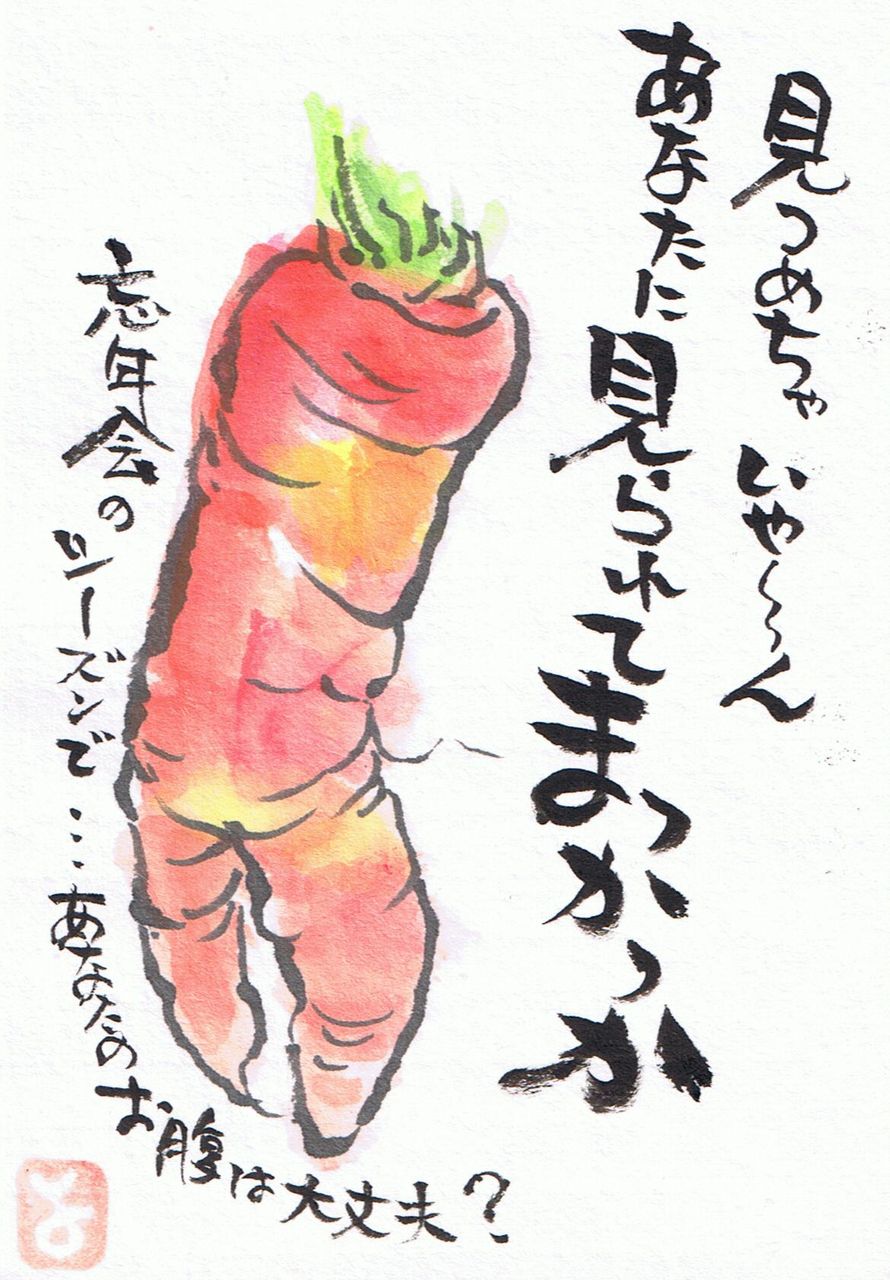 見つめちゃ いや〜〜ん
あなたに見られてまっかっか
忘年会のシーズンで…あなたのお腹は大丈夫?
と